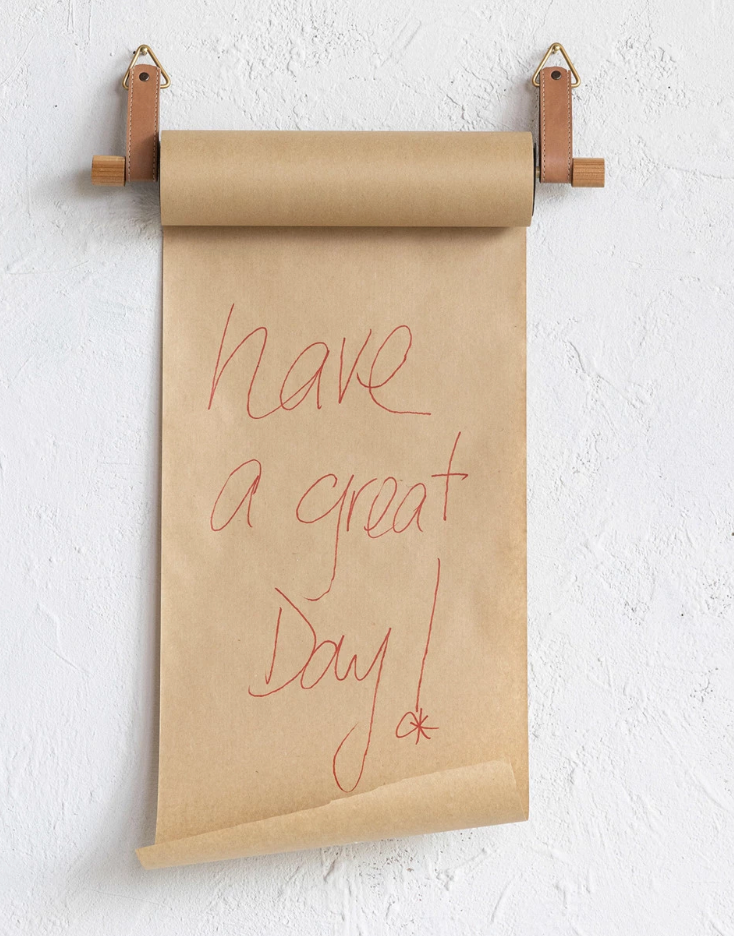 have
a great
Day!